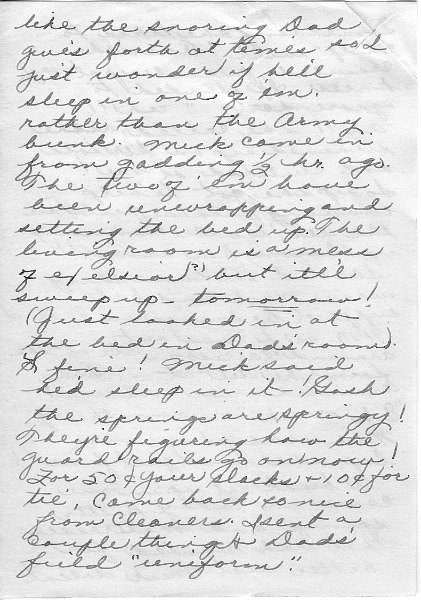 like the snoring Dad
gives forth at times so I
just wonder if he'll
sleep in one of 'em.
rather than the Army
bunk. Mick came in
from gadding ½ hr. ago.
The two of 'em have
been unwrapping and
setting the bed up. The
living room is a mess
of excelsior(?) but it'll
sweep up - tomorrow!
(Just looked in at
the bed in Dad's room).
S'fine! Mick said
he'd sleep in it -! Gosh
the springs are springy!
They're figuring how the
guard rails go on now!
For 50¢ your slacks + 10¢ for
tie, came back so nice
from cleaners. I sent a
couple things of Dad's
field "uniform".